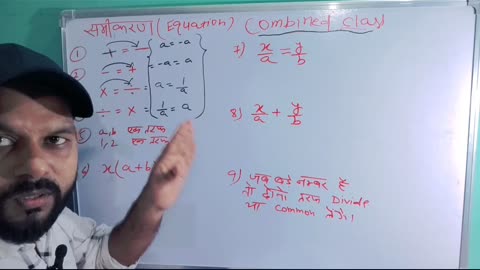 समीकरण (Equation) Combined Class
① + = - a = -a
② - = + -a = a
x = ÷ a = 1/a
÷ = x 1/a = a
a,b एक तरफ
1,2 एक तरफ
x(a+b
7) x/a = y/b
8) x/a + y/b
9) जब बडे नम्बर है
तो दोनो तरफ Divide
या Common लेंगे।